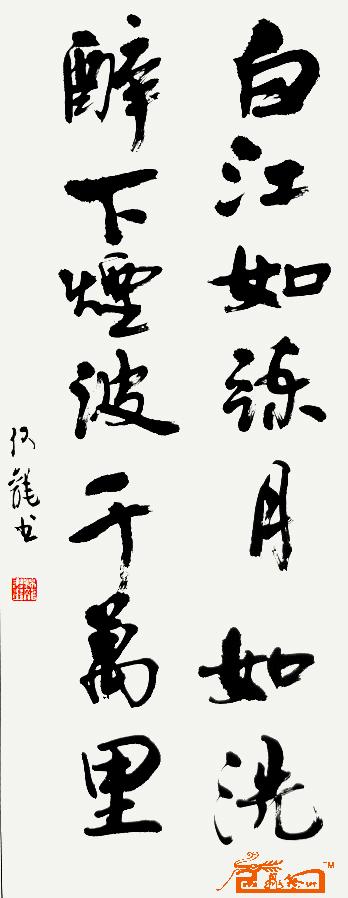 白江如練月如洗
醉下煙波千萬里
龍书
TM